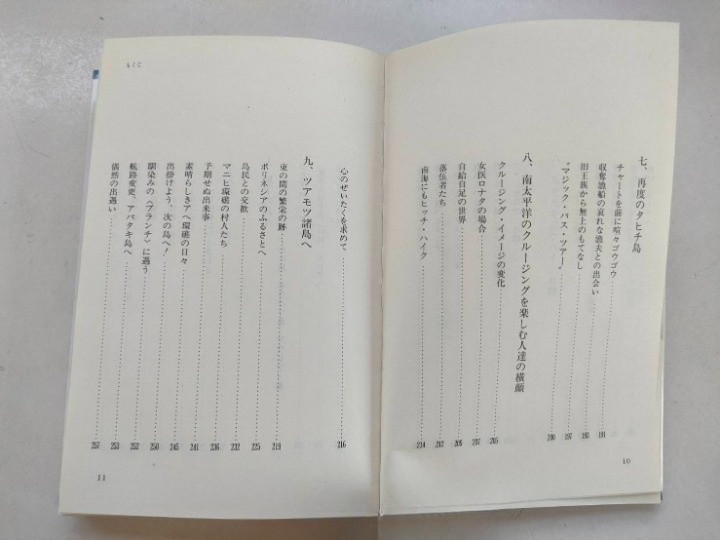 七、再度のタヒチ島
チャートを前に喧々ゴウゴウ 191
収奪漁船の哀れな漁夫との出会い 195
旧王族から無上のもてなし 197
“マジック・バス・ツアー” 200
八、南太平洋のクルージングを楽しむ人達の横顔
クルージング・イメージの変化 205
女医ロナタの場合 207
自給自足の世界 209
落伍者たち 212
南海にもヒッチ・ハイク 214
10
もくじ
心のぜいたくを求めて 216
九、ツアモツ諸島へ
束の間の繁栄の跡 219
ポリネシアのふるさとへ 225
島民との交歓 232
マニヒ環礁の村人たち 236
予期せぬ出来事 241
素晴らしきアヘ環礁の日々 245
出掛けよう、次の島へ! 250
馴染みの〈ブランチ〉に遇う 252
航路変更、アパタキ島へ 253
偶然の出遇い 257
11